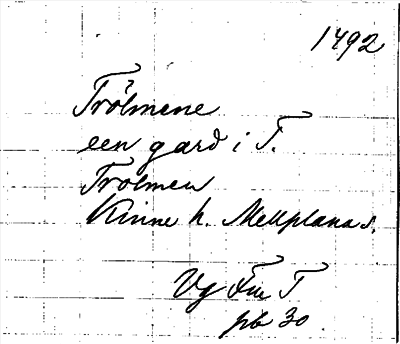 1492
Trölmene
een gard i T.
Trolmen
Kinne h. Mellplana s.
Vg Fru T
pb 30